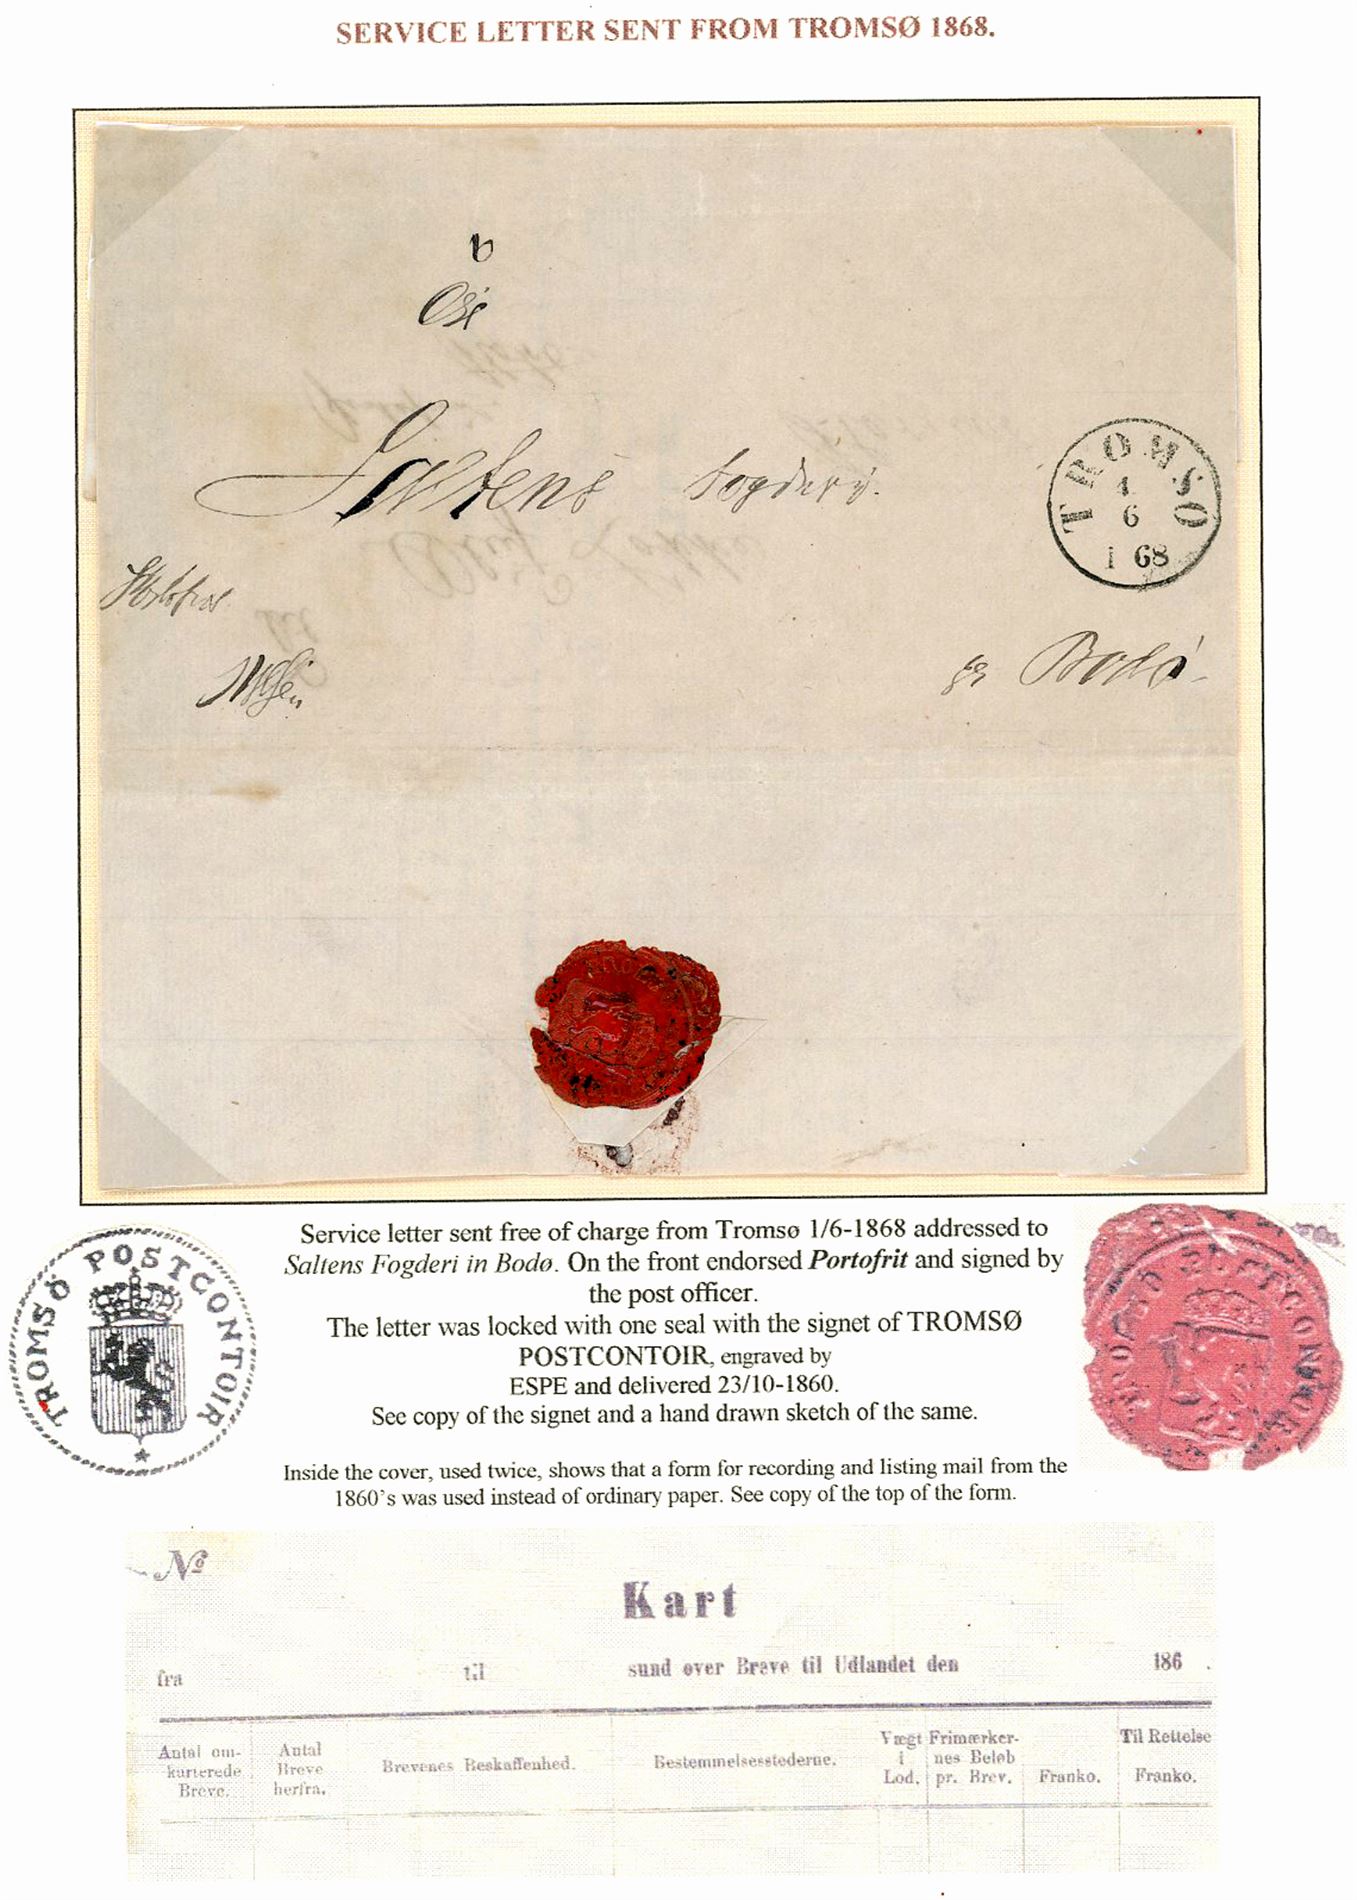 SERVICE LETTER SENT FROM TROMSØ 1868.
Saltens Fogderi.
TROMSØ
1
6
1868
Bodø
Service letter sent free of charge from Tromsø 1/6-1868 addressed to
Saltens Fogderi in Bodø. On the front endorsed Portofrit and signed by
the post officer.
The letter was locked with one seal with the signet of TROMSØ
POSTCONTOIR, engraved by
ESPE and delivered 23/10-1860.
See copy of the signet and a hand drawn sketch of the same.
TROMSÖ POSTCONTOIR
TROMSÖ POSTCONTOIR
Inside the cover, used twice, shows that a form for recording and listing mail from the
1860's was used instead of ordinary paper. See copy of the top of the form.
No
Kart
fra til sund over Breve til Udlandet den 186 .
Antal om-
karterede
Breve.
Antal
Breve
herfra.
Brevenes Beskaffenhed.
Bestemmelsesstederne.
Vægt
i
Lod.
Frimærker-
nes Beløb
pr. Brev.
Franko.
Til Rettelse
Franko.